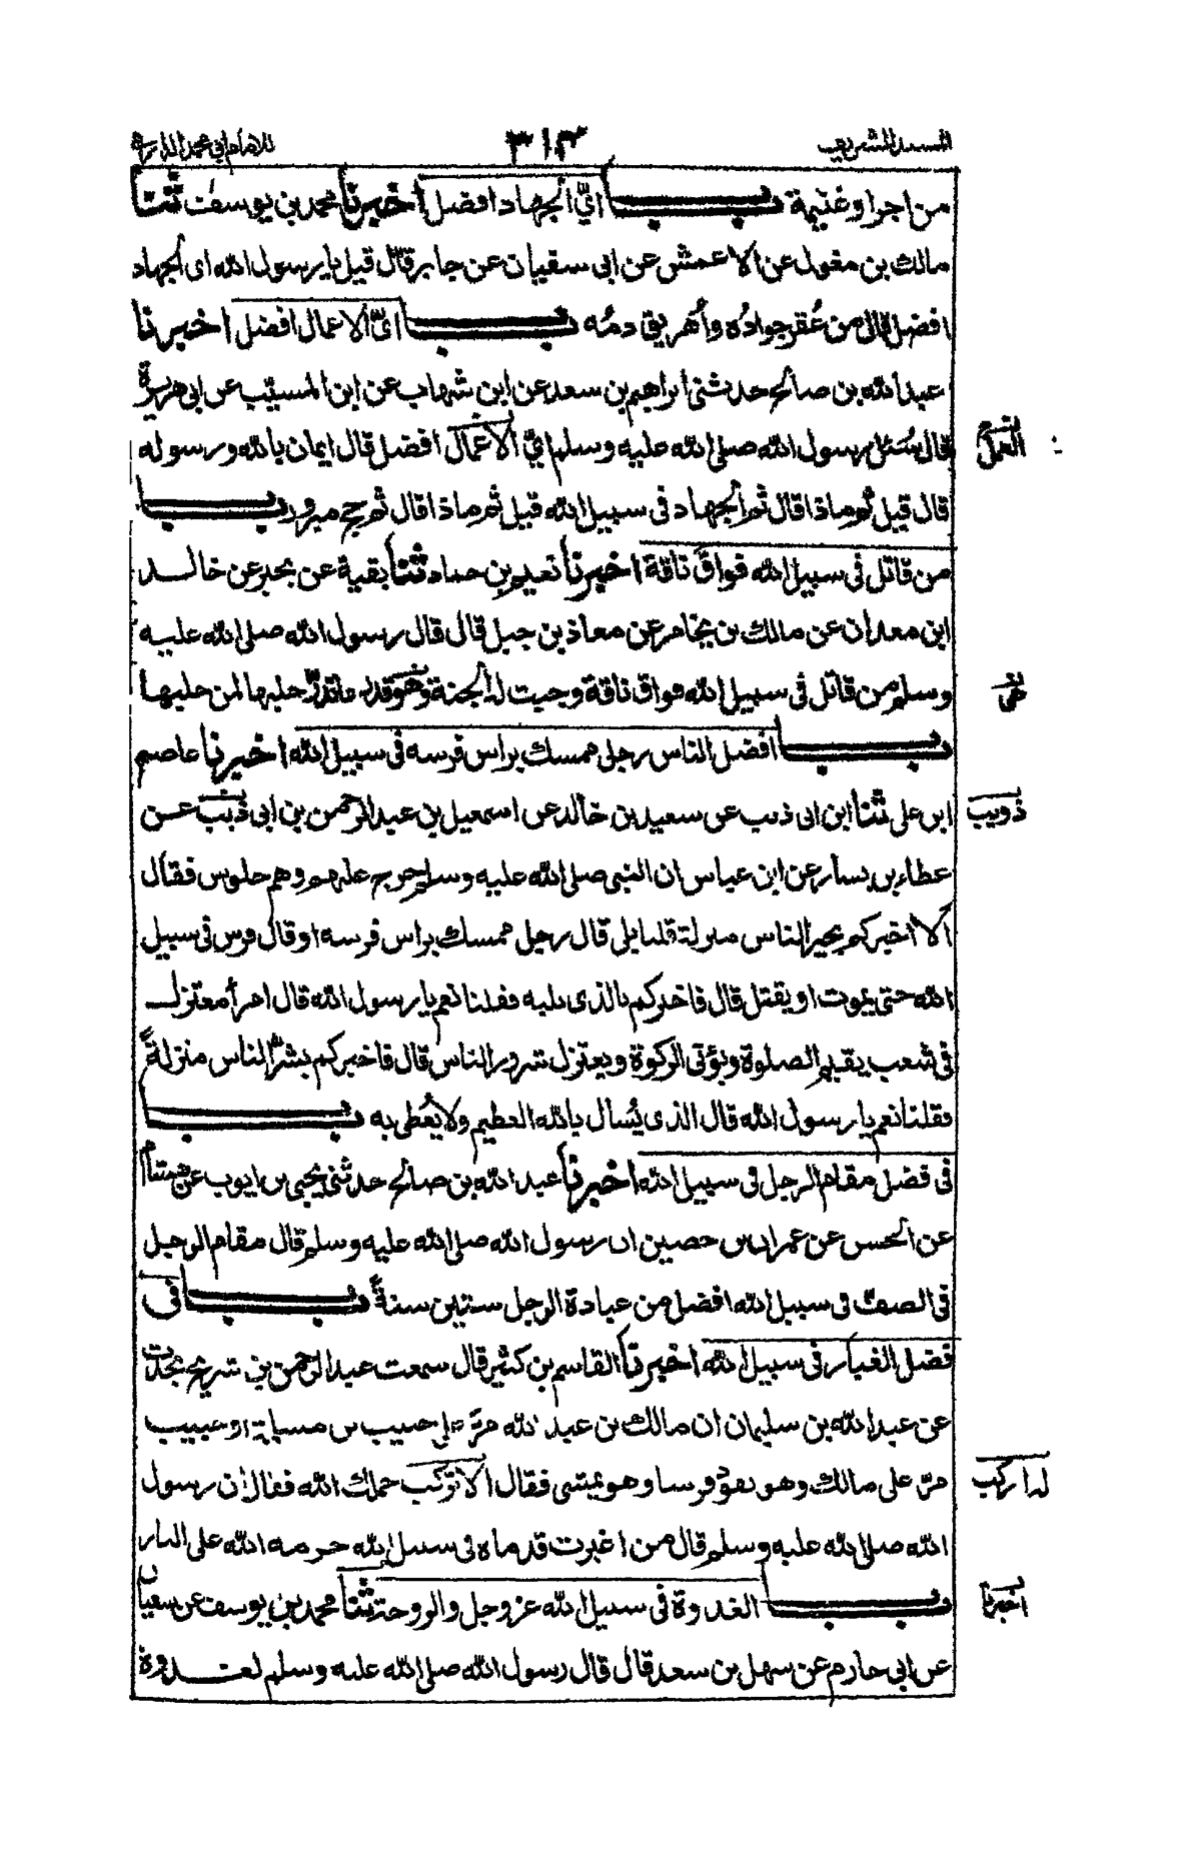 المسند الشريف ٣١٣ للامام ابي محمد الدارمي
من اجر او غنيمة باب اىّ الجهاد افضل اخبرنا محمد بن يوسف ثنا
مالك بن مغول عن الاعمش عن ابى سفيان عن جابر قال قيل يا رسول الله اى الجهاد
افضل قال من عُقر جوادُه وأهريق دمُه باب اىّ الاعمال افضل اخبرنا
عبد الله بن صالح حدثنى ابراهيم بن سعد عن ابن شهاب عن ابن المسيّب عن ابى هريرة
قال سُئل رسول الله صلى الله عليه وسلم اىّ الاعمال افضل قال ايمان بالله ورسوله
العمل
قال قيل ثم ماذا قال ثم الجهاد فى سبيل الله قيل ثم ماذا قال ثم حج مبرور باب
من قاتل فى سبيل الله فواق ناقة اخبرنا نعيم بن حماد ثنا بقية عن بحير عن خالد
ابن معدان عن مالك بن يخامر عن معاذ بن جبل قال قال رسول الله صلى الله عليه
وسلم من قاتل فى سبيل الله فواق ناقة وجبت له الجنة وهو قدر ما تدرّ حلبها لمن حلبها
هى
باب افضل الناس رجل ممسك براس فرسه فى سبيل الله اخبرنا عاصم
ابن على ثنا ابن ابى ذئب عن سعيد بن خالد عن اسمعيل بن عبد الرحمن بن ابى ذئب عن
ذويب
عطاء بن يسار عن ابن عباس ان النبى صلى الله عليه وسلم خرج عليهم وهم جلوس فقال
الا اخبركم بخير الناس منزلة قلنا بلى قال رجل ممسك براس فرسه او قال فرس فى سبيل
الله حتى يموت او يقتل قال فاخبركم بالذى يليه فقلنا نعم يا رسول الله قال امرأ معتزل
فى شعب يقيم الصلوة ويؤتى الزكوة ويعتزل شرور الناس قال فاخبركم بشرّ الناس منزلةً
فقلنا نعم يا رسول الله قال الذى يُسأل بالله العظيم ولا يُعطى به باب
فى فضل مقام الرجل فى سبيل الله اخبرنا عبد الله بن صالح حدثنى يحيى بن ايوب عن هشام
عن الحسن عن عمران بن حصين ان رسول الله صلى الله عليه وسلم قال مقام الرجل
فى الصفّ فى سبيل الله افضل من عبادة الرجل ستين سنةً باب فى
فضل الغبار فى سبيل الله اخبرنا القاسم بن كثير قال سمعت عبد الرحمن بن شريح يحدّث
عن عبد الله بن سليمان ان مالك بن عبد الله مرّ على حبيب بن مسلمة او حبيب
مرّ على مالك وهو يقود فرسا وهو يمشى فقال الا تركب حملك الله فقال ان رسول
له اركب
الله صلى الله عليه وسلم قال من اغبرت قدماه فى سبيل الله حرمه الله على النار
باب الغدوة فى سبيل الله عز وجل والروحة ثنا محمد بن يوسف عن سفيان
اخبرنا
عن ابى حازم عن سهل بن سعد قال قال رسول الله صلى الله عليه وسلم لغدوة